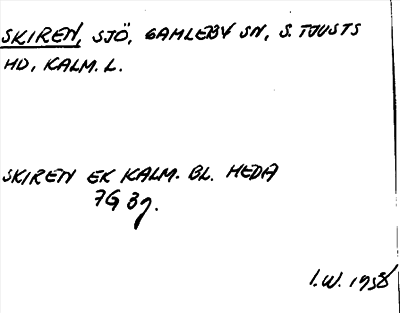 SKIREN, SJÖ, GAMLEBY SN, S. TJUSTS
HD, KALM. L.
SKIREN EK KALM. BL. HEDA
7G 3g.
I.W. 1958